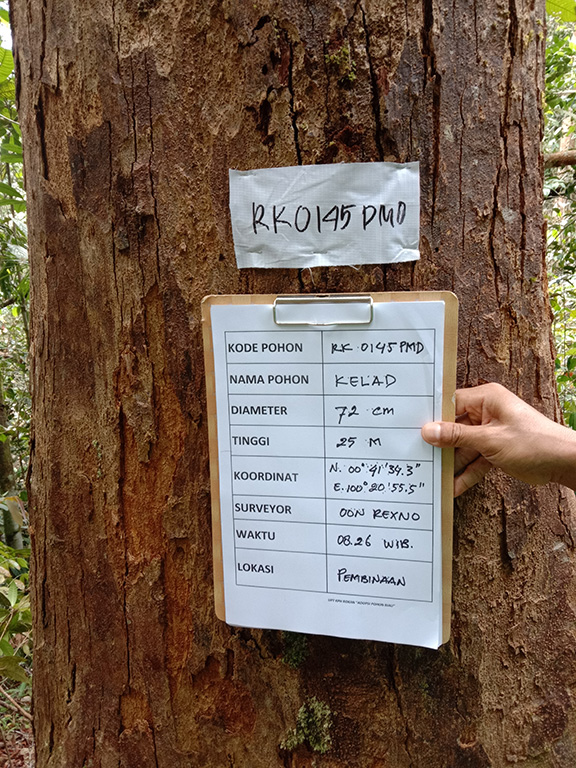 RK0145 PMD
KODE POHON RK 0145 PMD
NAMA POHON KELAD
DIAMETER 72 cm
TINGGI 25 M
KOORDINAT N. 00° 41' 34.3"
E. 100° 20' 55.5"
SURVEYOR OON REXNO
WAKTU 08.26 WIB.
LOKASI PEMBINAAN